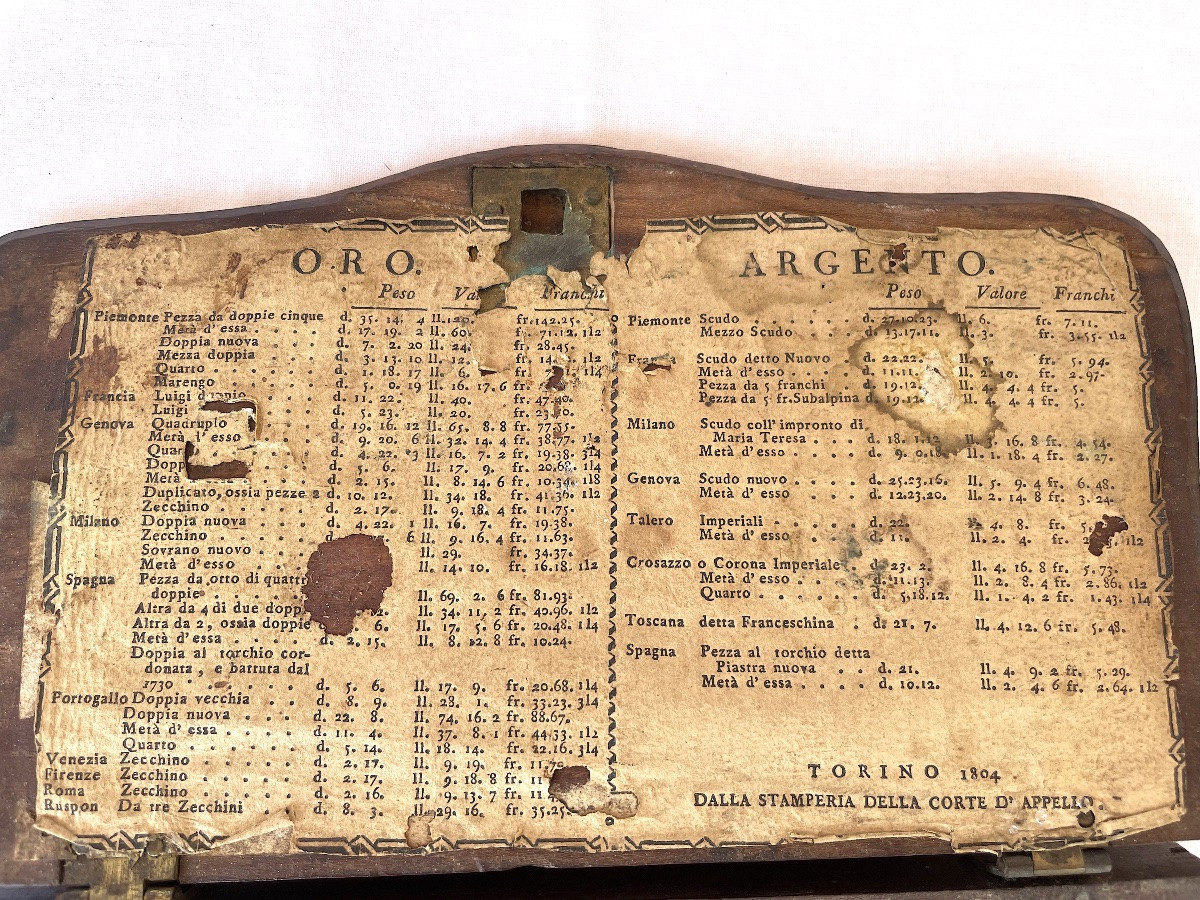 ORO.
Peso Franchi
Piemonte Pezza da doppie cinque d. 35. 14. 4 ll.120. fr.142.25.
Metà d'essa . . . . d. 17. 19. 2 ll. 60. fr. 71.12. 1|2
Doppia nuova . . . . d. 7. 2. 20 ll. 24. fr. 28.45.
Mezza doppia . . . . d. 3. 13. 10 ll. 12. fr. 1|2
Quarto . . . . d. 1. 18. 17 ll. 6. fr. 1|4
Marengo . . . . d. 5. 0. 19 ll. 16. 17. 6 fr.
Francia Luigi d. 11. 22. ll. 40. fr. 47.40.
Luigi d. 5. 23. ll. 20. fr.
Genova Quadruplo d. 19. 16. 12 ll. 65. 8. 8 fr. 77.55.
Metà d'esso d. 9. 20. 6 ll. 32. 14. 4 fr. 38.77. 1|2
d. 4. 22. 3 ll. 16. 7. 2 fr. 19.38. 3|4
d. 5. 6. ll. 17. 9. fr. 20.68. 1|4
Metà d. 2. 15. ll. 8. 14. 6 fr. 10.34. 1|8
Duplicato, ossia pezze 2 d. 10. 12. ll. 34. 18. fr. 41.36. 1|2
Zecchino . . . . d. 2. 17. ll. 9. 18. 4 fr. 11.75.
Milano Doppia nuova . . . . d. 4. 22. 1 ll. 16. 7. fr. 19.38.
Zecchino . . . . 6 ll. 9. 16. 4 fr. 11.63.
Sovrano nuovo . . . ll. 29. fr. 34.37.
Metà d'esso . . . ll. 14. 10. fr. 16.18. 1|2
Spagna Pezza da otto di
doppie . . . ll. 69. 2. 6 fr. 81.93.
Altra da 4 di due ll. 34. 11. 2 fr. 40.96. 1|2
Altra da 2, ossia doppie 6. ll. 17. 5. 6 fr. 20.48. 1|4
Metà d'essa . . . . d. 2. 15. ll. 8. 12. 8 fr. 10.24.
Doppia al torchio cor-
donata, e battuta dal
1730 . . . . d. 5. 6. ll. 17. 9. fr. 20.68. 1|4
Portogallo Doppia vecchia . . . d. 8. 9. ll. 28. 1. fr. 33.23. 3|4
Doppia nuova . . . . d. 22. 8. ll. 74. 16. 2 fr. 88.67.
Metà d'essa . . . . d. 11. 4. ll. 37. 8. 1 fr. 44.33. 1|2
Quarto . . . . d. 5. 14. ll. 18. 14. fr. 22.16. 3|4
Venezia Zecchino . . . . d. 2. 17. ll. 9. 19. fr. 11.79.
Firenze Zecchino . . . . d. 2. 17. ll. 9. 18. 8 fr. 11
Roma Zecchino . . . . d. 2. 16. ll. 9. 13. 7 fr. 11
Ruspon Da tre Zecchini . . . d. 8. 3. ll. 29. 16. fr. 35.25.
ARGENTO.
Peso Valore Franchi
Piemonte Scudo . . . . d. 27.10.23. ll. 6. fr. 7.11.
Mezzo Scudo . . . d. 13.17.11. ll. 3. fr. 3.55. 1|2
Scudo detto Nuovo . d. 22.22. ll. 5. fr. 5.94.
Metà d'esso . . . d. 11.11. ll. 2. 10. fr. 2.97.
Pezza da 5 franchi . d. 19.12. ll. 4. 4. 4 fr. 5.
Pezza da 5 fr. Subalpina d. 19.12 ll. 4. 4. 4 fr. 5.
Milano Scudo coll' impronto di
Maria Teresa . . . d. 18. 1.12 ll. 3. 16. 8 fr. 4. 54.
Metà d'esso . . . d. 9. 0.18. ll. 1. 18. 4 fr. 2. 27.
Genova Scudo nuovo . . . . d. 25.23.16. ll. 5. 9. 4 fr. 6. 48.
Metà d'esso . . . . d. 12.23.20. ll. 2. 14. 8 fr. 3. 24.
Talero Imperiali . . . . d. 22. 4. 8. fr.
Metà d'esso . . . . d. 11. ll. 2. 4. fr. 1|2
Crosazzo o Corona Imperiale d. 23. 2. ll. 4. 16. 8 fr. 5. 73.
Metà d'esso . . . . d. 11.13. ll. 2. 8. 4 fr. 2. 86. 1|2
Quarto . . . . d. 5.18.12. ll. 1. 4. 2 fr. 1. 43. 1|4
Toscana detta Franceschina . d. 21. 7. ll. 4. 12. 6 fr. 5. 48.
Spagna Pezza al torchio detta
Piastra nuova . . . d. 21. ll. 4. 9. 2 fr. 5. 29.
Metà d'essa . . . . d. 10.12. ll. 2. 4. 6 fr. 2. 64. 1|2
TORINO 1804
DALLA STAMPERIA DELLA CORTE D' APPELLO.